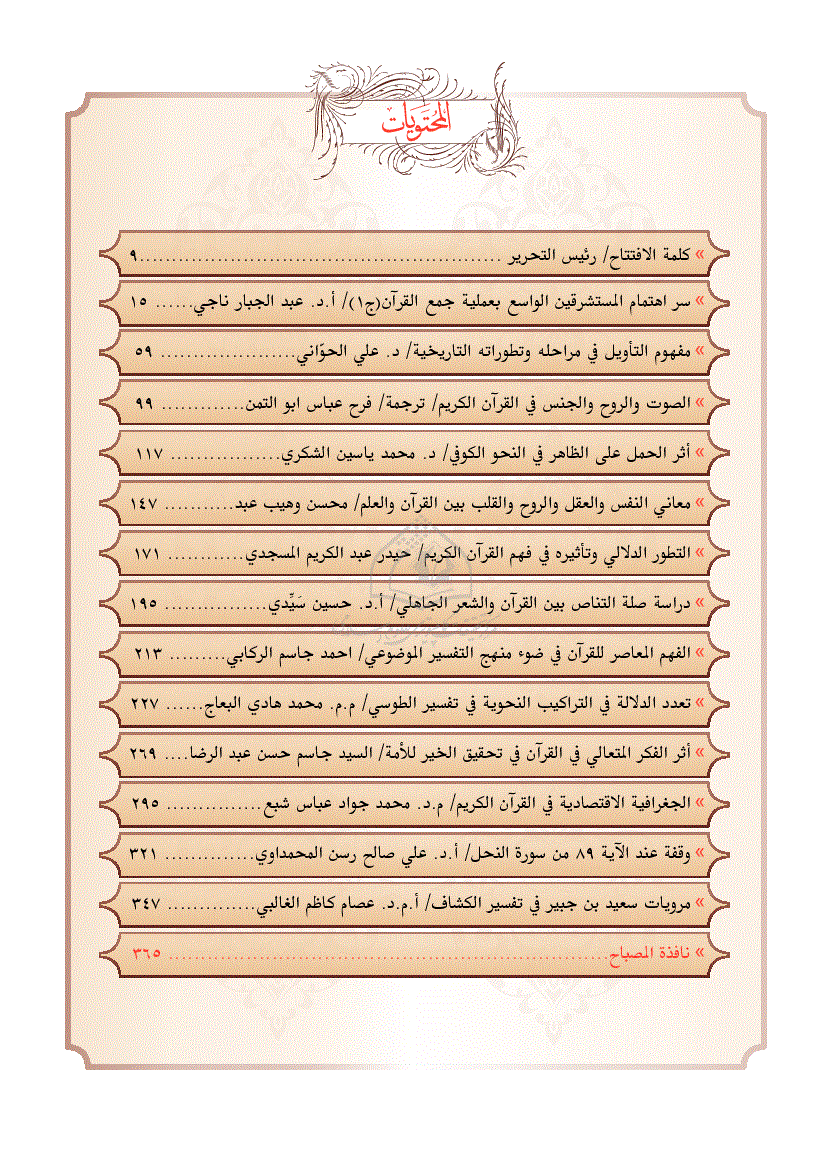 المحتويات
» كلمة الافتتاح/ رئيس التحرير ......................................................٩
» سر اهتمام المستشرقين الواسع بعملية جمع القرآن(ج١)/ أ.د. عبد الجبار ناجي...... ١٥
» مفهوم التأويل في مراحله وتطوراته التاريخية/ د. علي الحوّاني..................... ٥٩
» الصوت والروح والجنس في القرآن الكريم/ ترجمة/ فرح عباس ابو التمن............. ٩٩
» أثر الحمل على الظاهر في النحو الكوفي/ د. محمد ياسين الشكري................. ١١٧
» معاني النفس والعقل والروح والقلب بين القرآن والعلم/ محسن وهيب عبد........... ١٤٧
» التطور الدلالي وتأثيره في فهم القرآن الكريم/ حيدر عبد الكريم المسجدي............ ١٧١
» دراسة صلة التناص بين القرآن والشعر الجاهلي/ أ.د. حسين سَيِّدي................ ١٩٥
» الفهم المعاصر للقرآن في ضوء منهج التفسير الموضوعي/ احمد جاسم الركابي......... ٢١٣
» تعدد الدلالة في التراكيب النحوية في تفسير الطوسي/ م.م. محمد هادي البعاج...... ٢٢٧
» أثر الفكر المتعالي في القرآن في تحقيق الخير للأمة/ السيد جاسم حسن عبد الرضا.... ٢٦٩
» الجغرافية الاقتصادية في القرآن الكريم/ م.د. محمد جواد عباس شبع............... ٢٩٥
» وقفة عند الآية ٨٩ من سورة النحل/ أ.د. علي صالح رسن المحمداوي.............. ٣٢١
» مرويات سعيد بن جبير في تفسير الكشاف/ أ.م.د. عصام كاظم الغالبي.............. ٣٤٧
» نافذة المصباح.................................................................... ٣٦٥